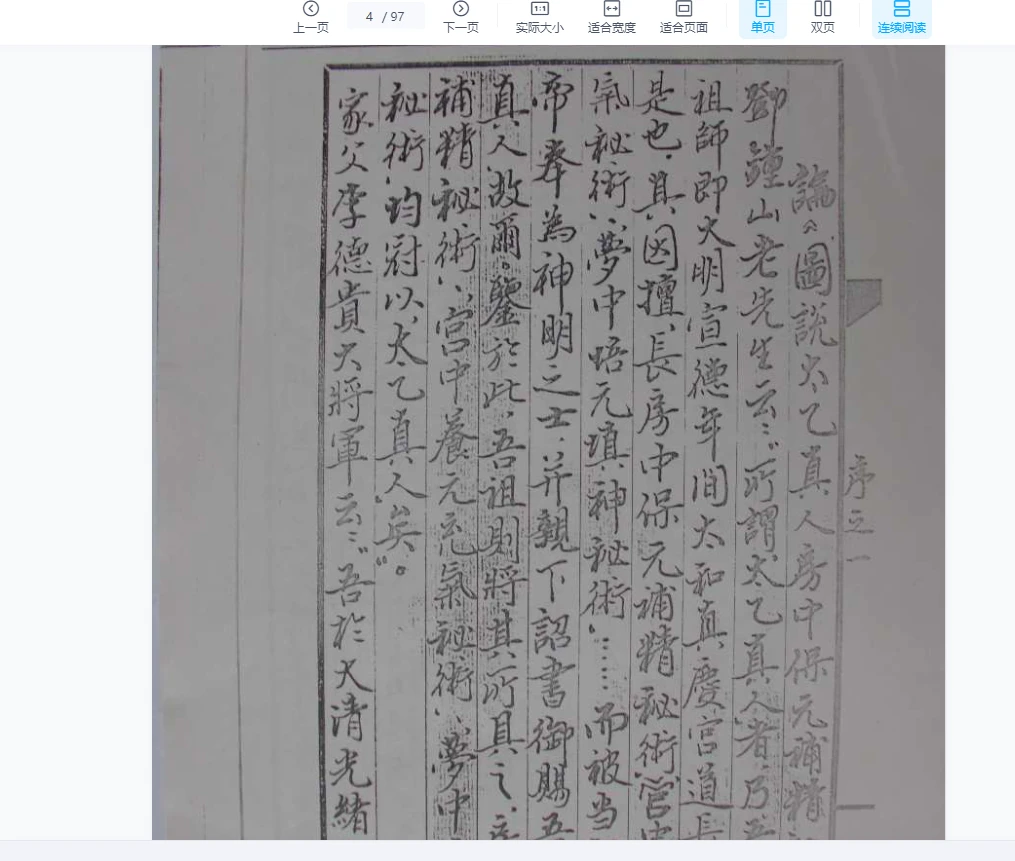 上一页
4 / 97
下一页
1:1
实际大小
适合宽度
适合页面
单页
双页
连续阅读
序之一
論《圖說太乙真人房中保元補精
鄧鐘山老先生云：“所謂太乙真人者，乃吾
祖師即大明宣德年间太和真慶宫道長
是也，其因擅長房中保元補精秘術、宫中
氣秘術、夢中悟元填神秘術，……而被当
帝奉為神明之士，并親下詔書御賜吾
真人故爾。鑒於此，吾祖則將其所具之，
補精秘術、宫中養元充氣秘術、夢中
秘術，均冠以，太乙真人，矣”。
家父李德貴大將軍云：“吾於大清光緒